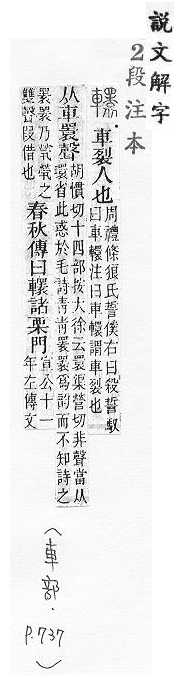 說文解字
2段注本
轘.
車裂人也
周禮條狼氏誓僕右曰殺誓馭
曰車轘注曰車轘謂車裂也
从車瞏聲
胡慣切十四部按大徐云瞏渠營切非聲當从
瞏省此惑於毛詩靑靑瞏瞏爲韵而不知詩之
瞏瞏乃煢煢之
雙聲叚借也
春秋傳曰轘諸栗門
宣公十一
年左傳文
(車部.
P.737
)